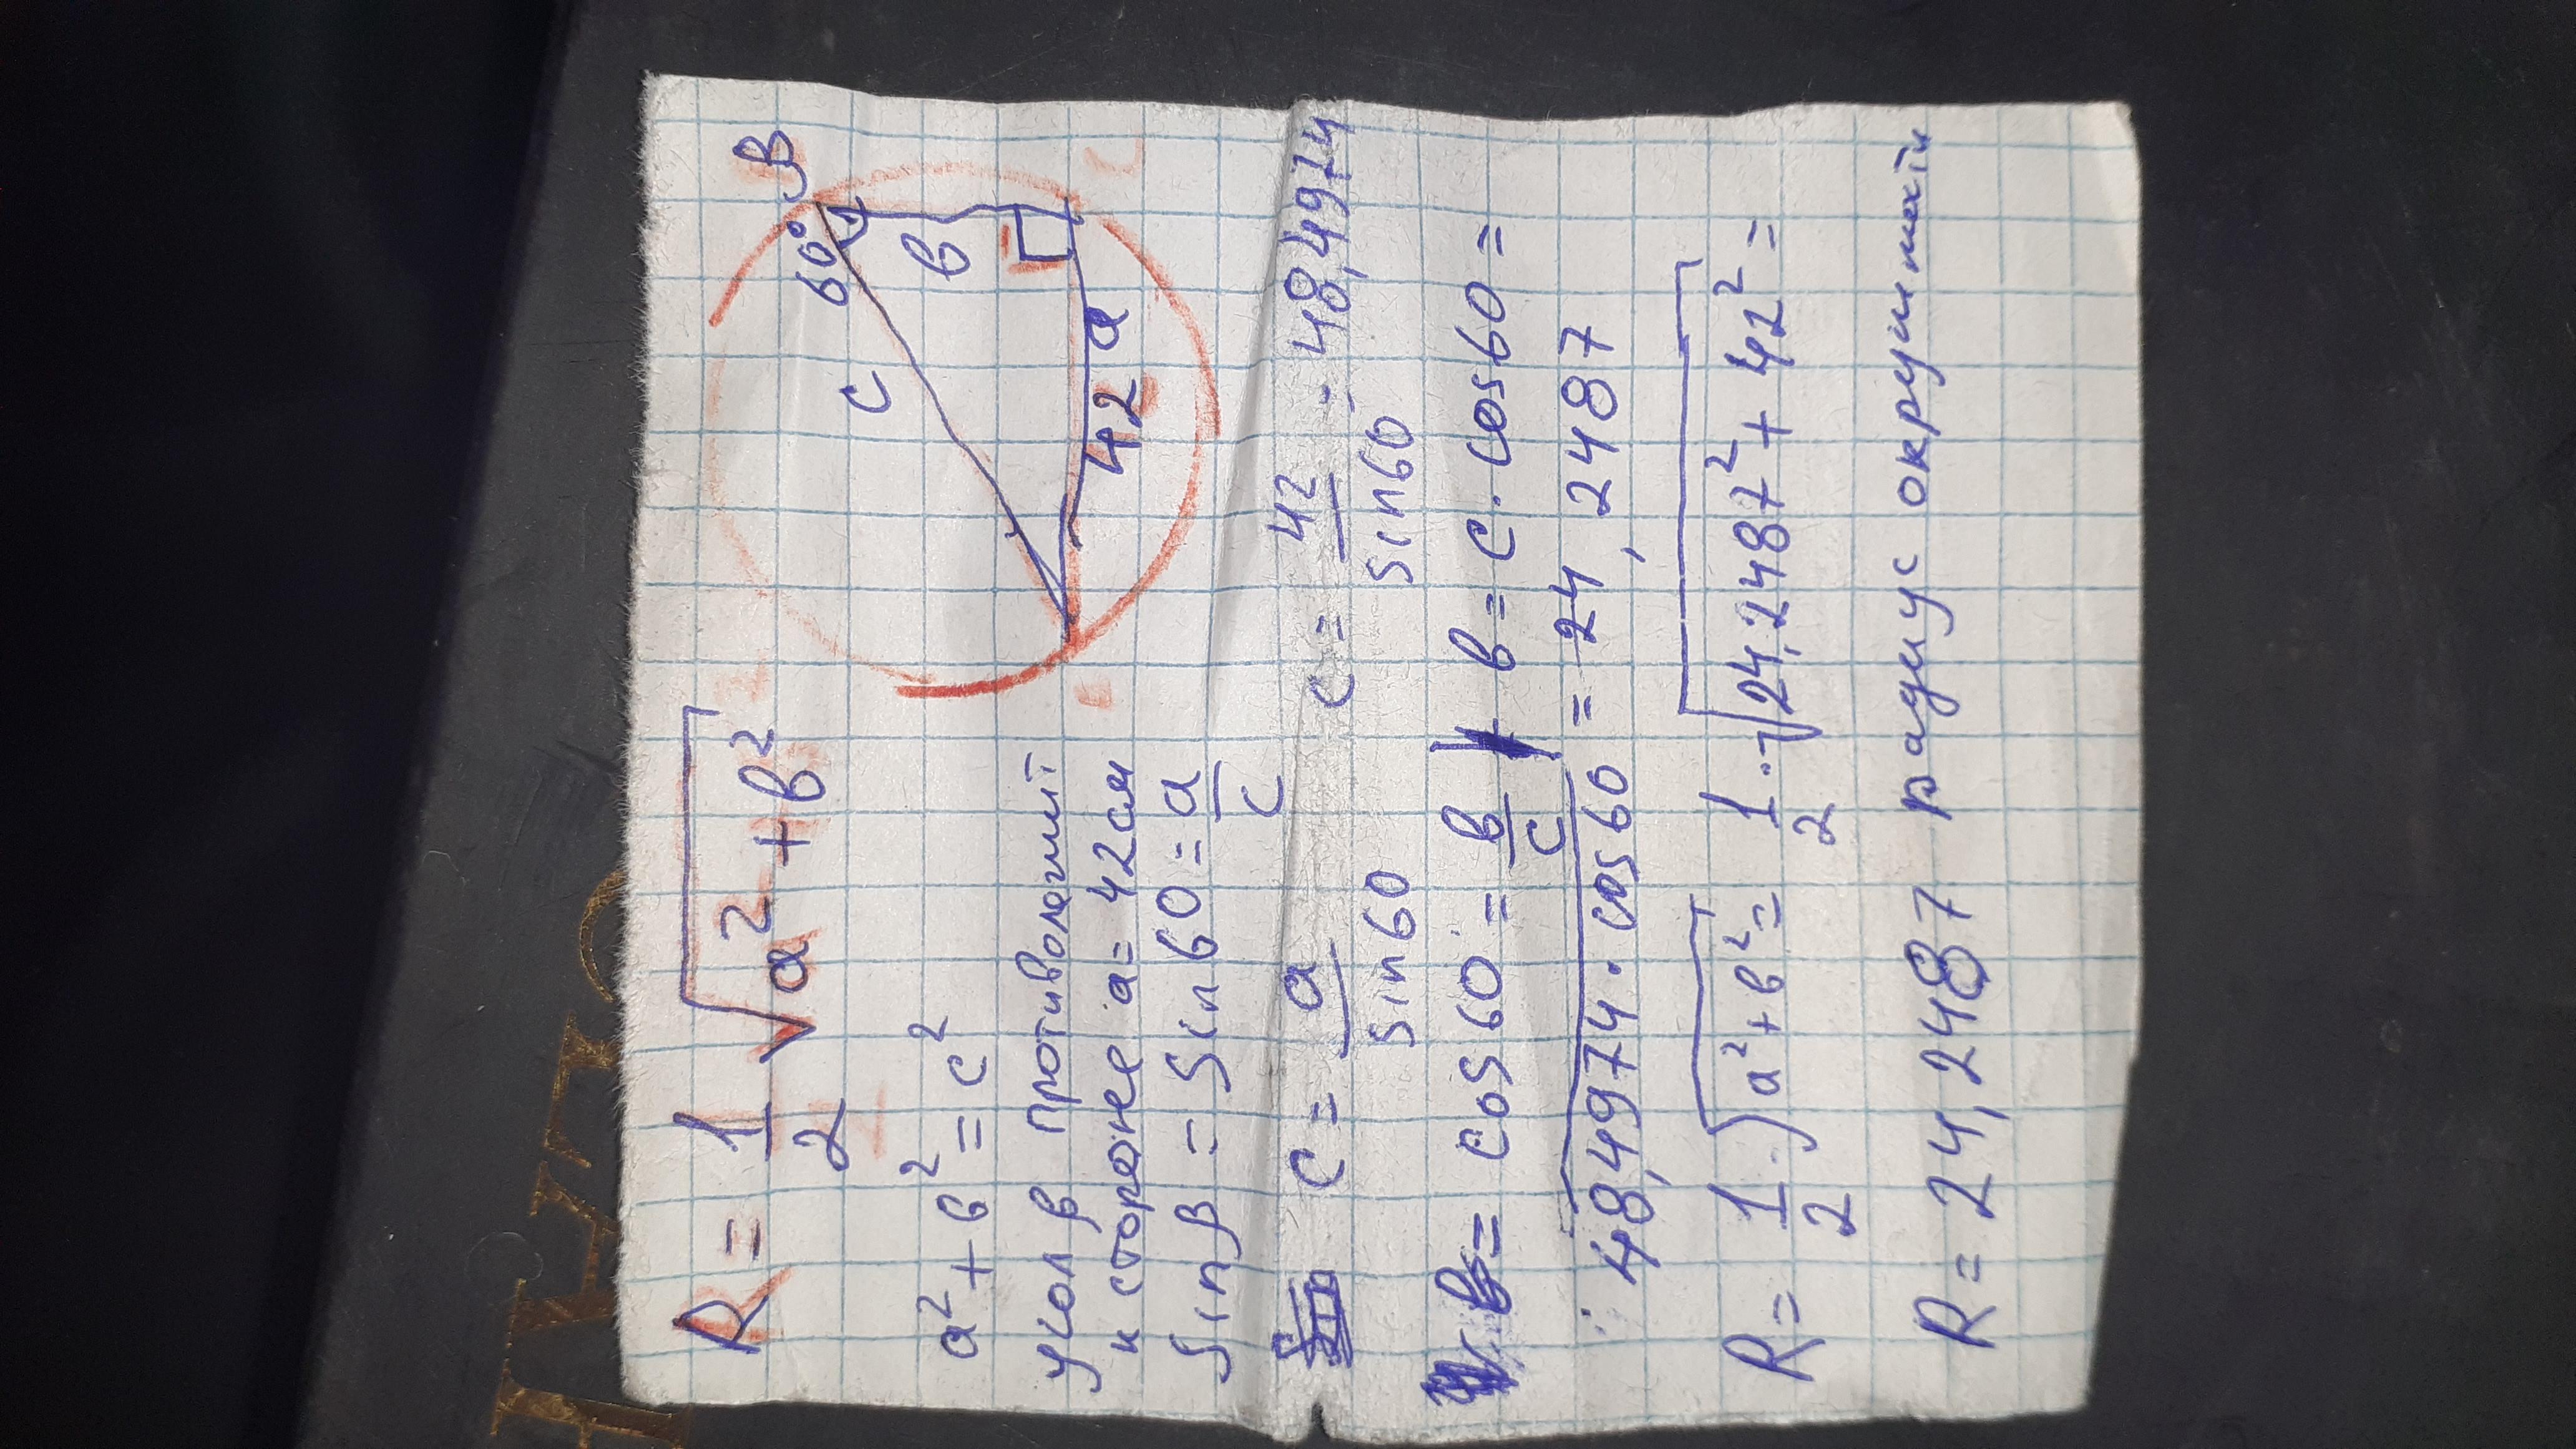 R = 1/2 √a² + b²
B
60°
c
b
42 a
a² + b² = c²
угол β противолежит
к стороне a = 42 см
sin β = sin 60 = a/c
c = a/sin 60 c = 42/sin 60 = 48,4974
b = cos 60 = b/c b = c · cos 60 =
= 48,4974 · cos 60 = 24,2487
R = 1/2 · √a² + b² = 1/2 · √24,2487² + 42² =
R = 24,2487 радиус окружности